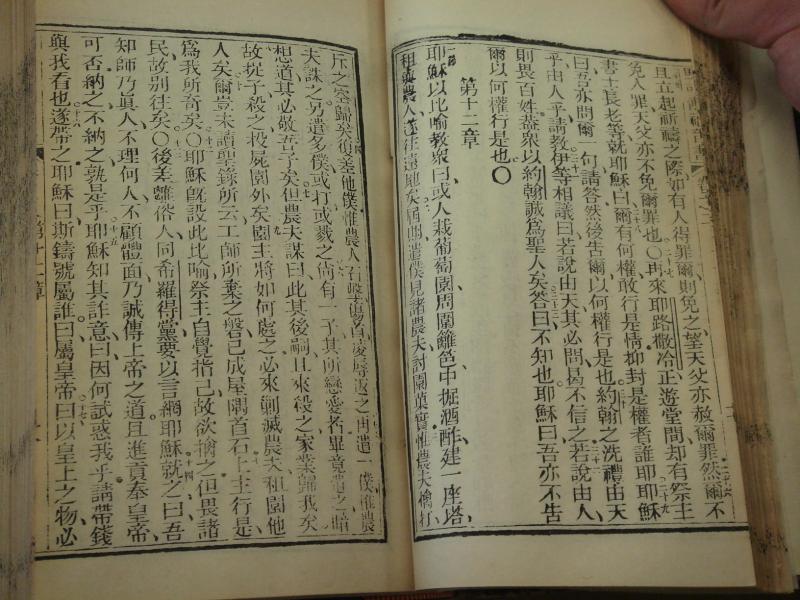 且立起祈禱之際如有人得罪爾則免之望天父亦赦爾罪然爾不
免人罪天父亦不免爾罪也〇再來耶路撒冷正遊堂間却有祭主
書士長老等就耶穌曰爾有何權敢行是情抑封是權者誰耶耶穌
曰吾亦問爾一句請答然後告爾以何權行是也約翰之洗禮由天
乎由人乎請教伊等相議曰若說由天其必問曷不信之若說由人
則畏百姓蓋眾以約翰誠為聖人矣答曰不知也耶穌曰吾亦不告
爾以何權行是也〇
第十二章
耶穌以此喻教眾曰或人栽葡萄園周圍籬笆中掘酒酢建一座塔
租與農人遂往遠地矣屆期遣僕見諸農夫討園菓實惟農夫擒打
斥之空歸矣復差他僕惟農人石擊凌辱返之再遣一僕惟農
夫誅之另遣多僕或打或戮之倘有一子其所戀愛名畢竟
想道其必敬吾子矣但農夫謀曰此其後嗣且來殺之家業歸我矣
故捉子殺之投屍園外矣園主將如何處之必來剿滅農夫租園他
人矣爾豈未讀聖錄所云工師所棄之磐已成屋隅首石上主行是
為我所奇矣〇耶穌旣設此比喻祭主自覺指己故欲擒之但畏諸
民故別往矣〇後差離俗人同希羅得黨要以言網耶穌就之曰吾
知師乃真人不理何人不顧體面乃誠傳上帝之道且進貢奉皇帝
可否納之不納之孰是乎耶穌知其詐意曰因何試惑我乎請帶錢
與我看也遂帶之耶穌曰斯鑄號屬誰曰屬皇帝曰以皇上之物必